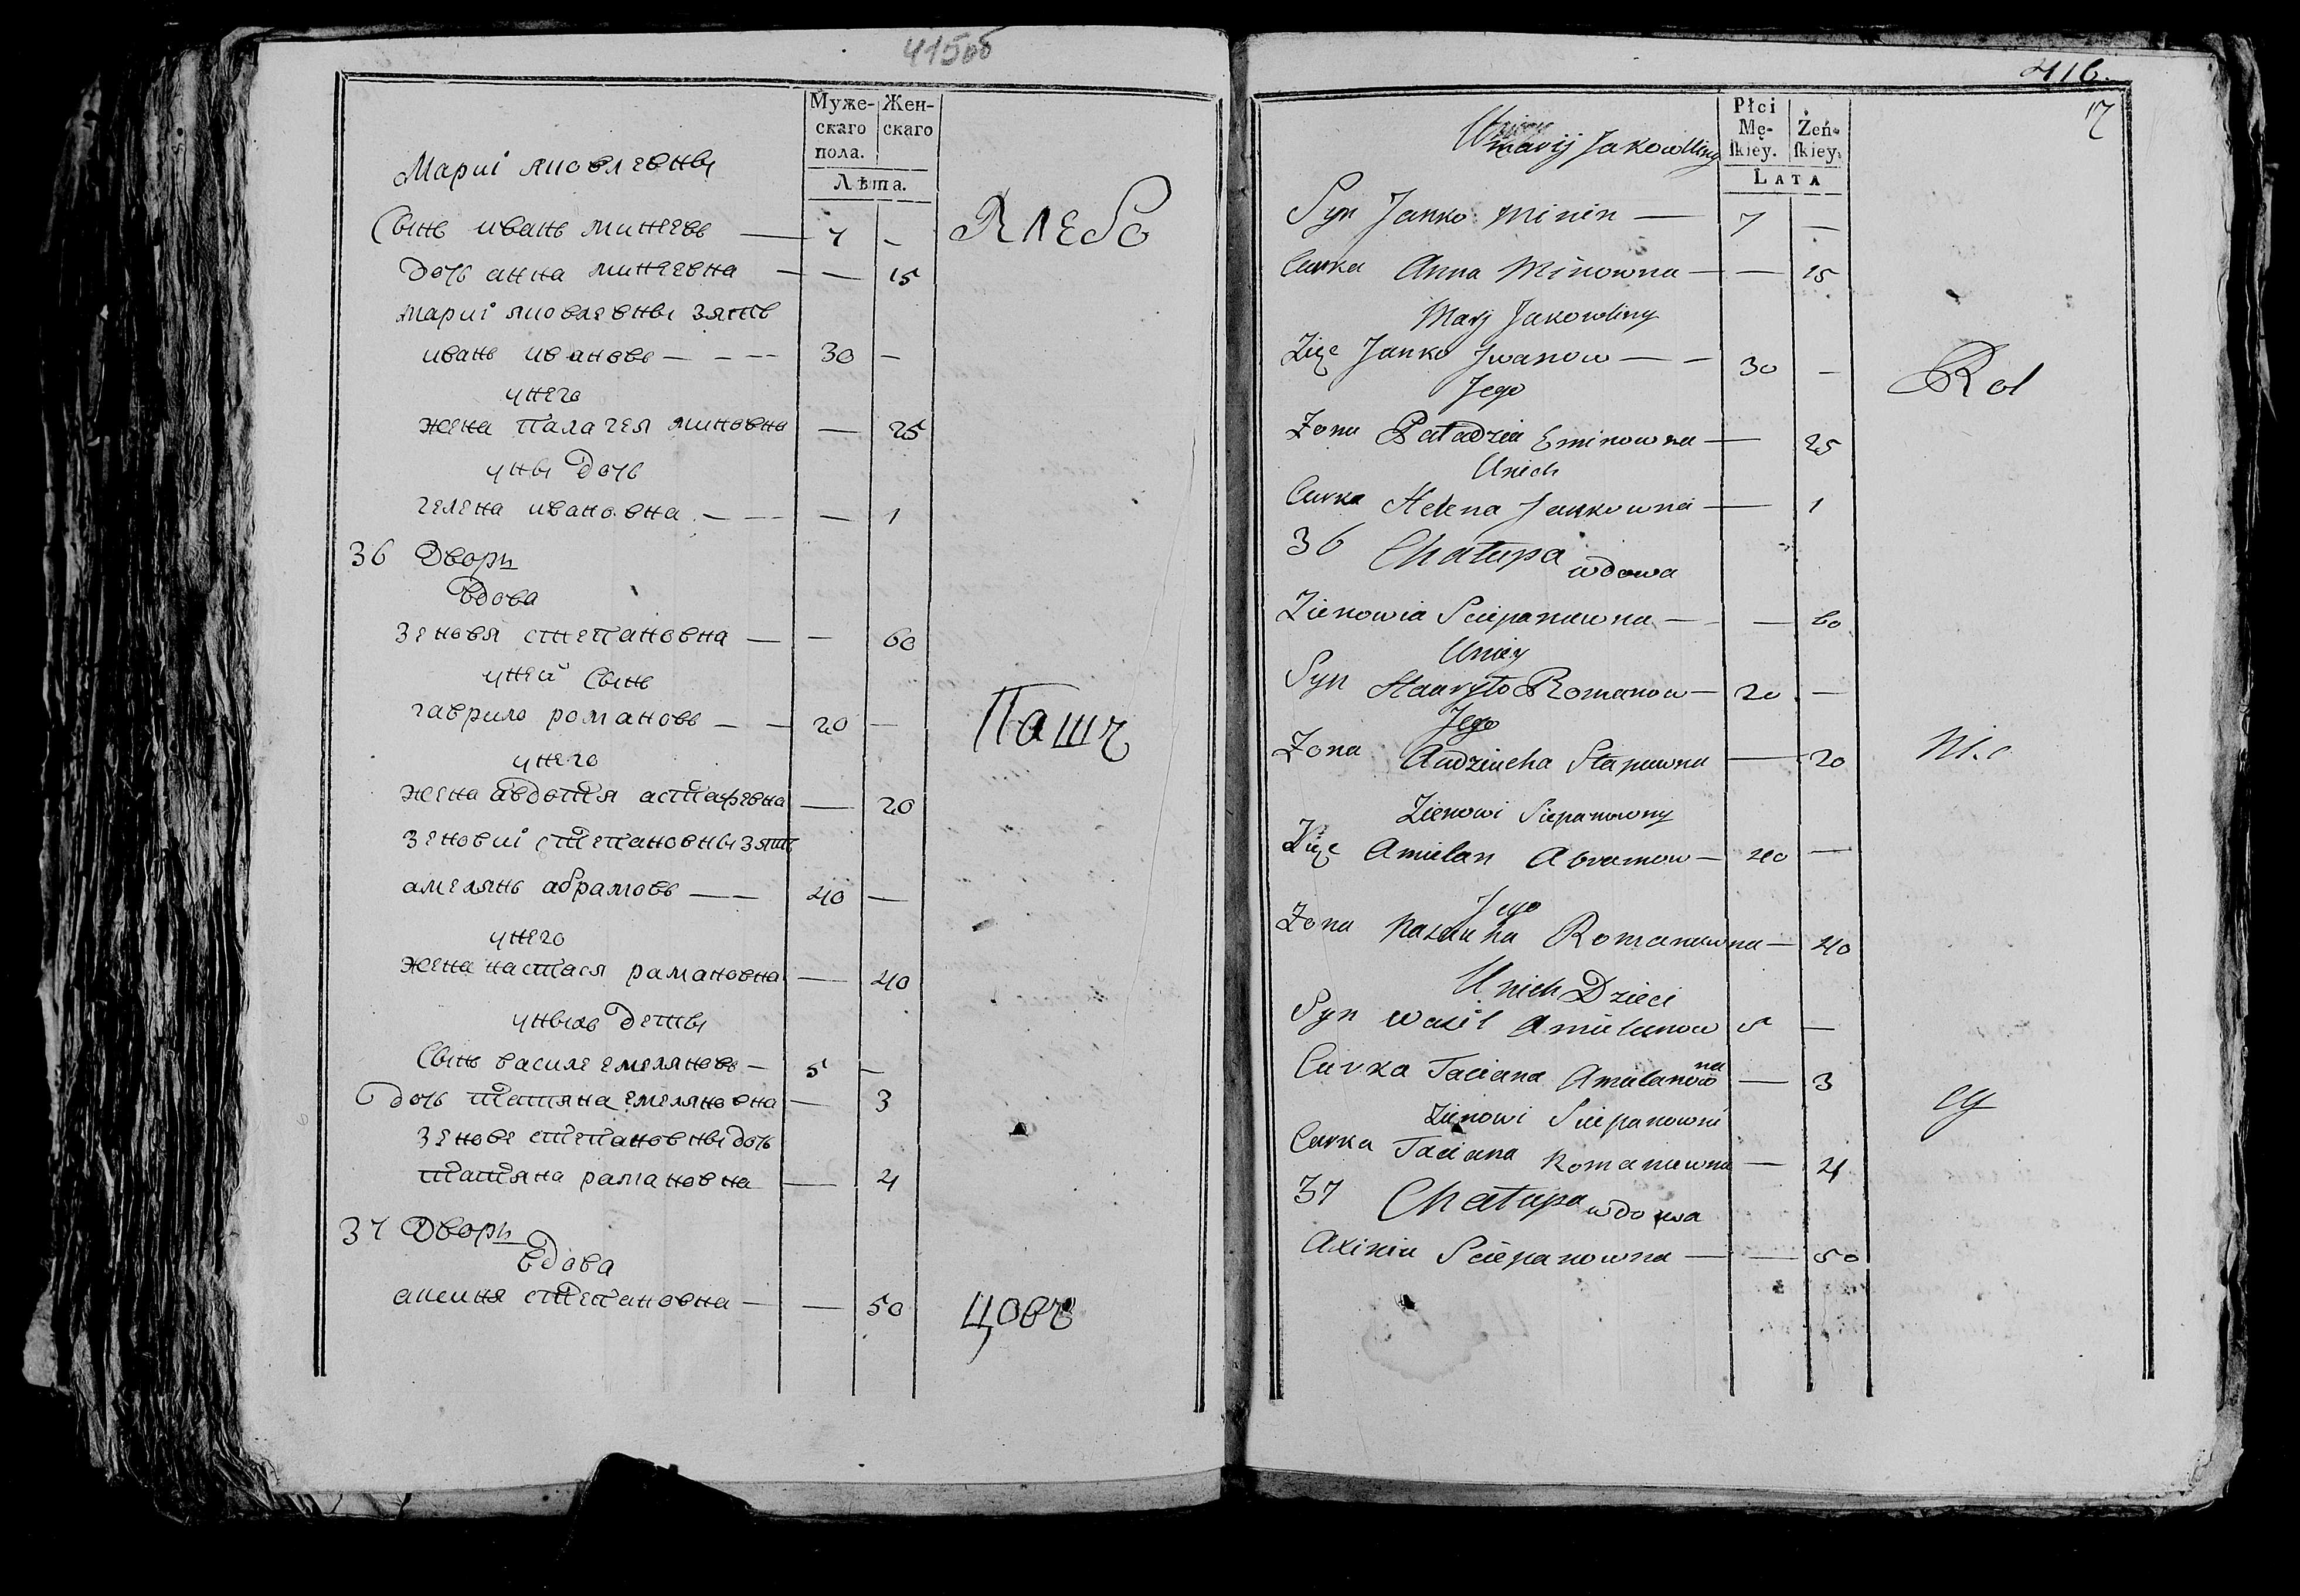 415об
Муже- Жен-
скаго скаго
пола.
Лѣта.
Марiи яковлевны
Сынъ иванъ минеевъ — 7 —
дочь анна минеевна — — 15
марiи яковлевны зять
иванъ ивановъ — — — 30 —
унего
жена палагея миновна — 25
уны дочь
гелена ивановна — — — 1
36 Дворъ
вдова
зеновя степановна — — 60
уней сынъ
гаврило романовъ — — 20 —
унего
жена авдотя астафевна — 20
зеновиi степановны зять
амелянъ абрамовъ — — 40 —
унего
жена настася рамановна — 40
уныхъ деты
Сынъ василе емеляновъ — 5 —
дочь татяна емеляновна — 3
зенове степановны дочь
татяна рамановна — 4
37 Дворъ
вдова
аксиня степановна — — 50
Хлебо
Паш
цовъ
416.
17
Płci
Mę- Żeń-
skiey. skiey.
LATA
Marij Jakowliny
Syn Janko Minin — 7 —
Curka Anna Minowna — — 15
Marj Jakowliny
Zięc Janko Jwanow — — 30 —
Jego
Zona Paladzia Eminowna — 25
Unich
Curka Helena Jankowna — 1
36 Chałupa wdowa
Zienowia Sciepanowna — — 60
Uniey
Syn Hauryło Romanow — 20 —
Jego
Zona Audziucha Stapuwna — 20
Zienowi Sciepanowny
Zięc Amielan Abramow — 40 —
Jego
Zona Nastaziia Romanowna — 40
Unich Dzieci
Syn Wasil Amielanow 5 —
Curka Taciana Amielanowna — 3
Zienowi Sciepanowni
Curka Taciana Romanowna — 4
37 Chałupa wdowa
Axinia Sciepanowna — — 50
Rol
Ni.c
cy